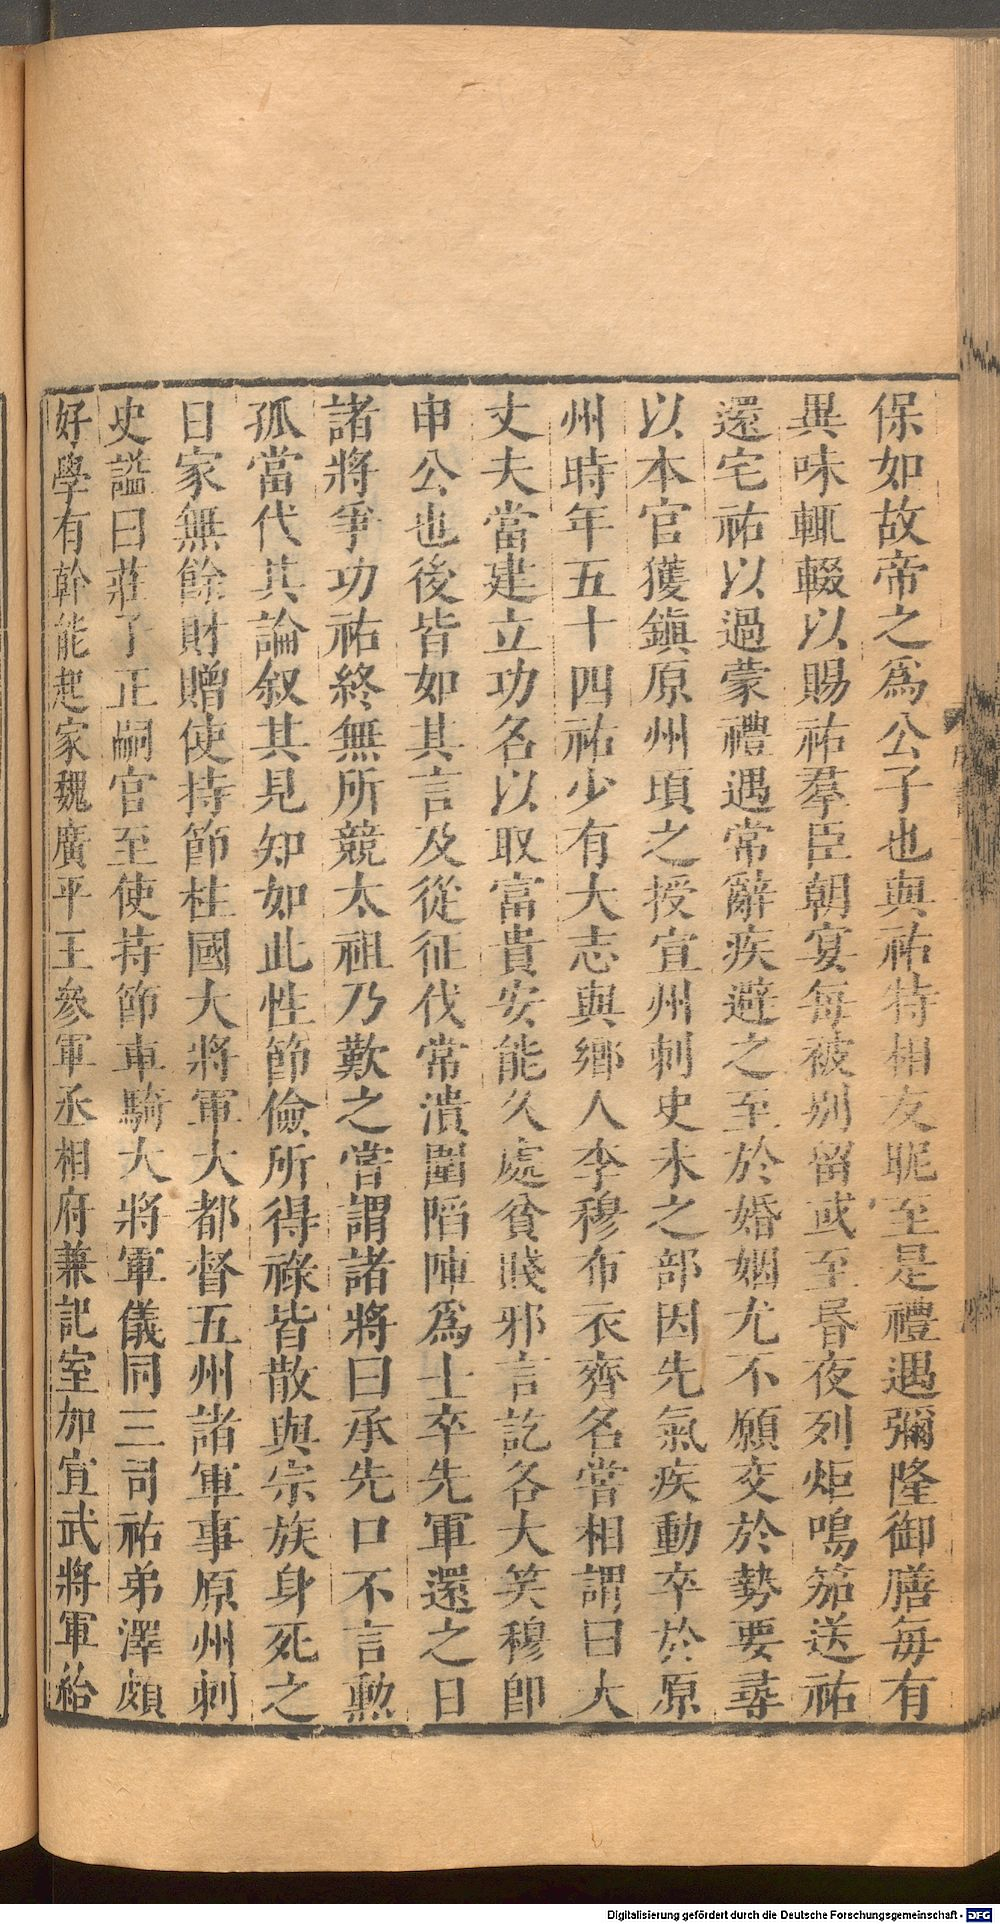 保如故帝之爲公子也與祐特相友昵至是禮遇彌隆御膳每有
異味輒輟以賜祐羣臣朝宴每被别留或至昏夜列炬鳴笳送祐
還宅祐以過蒙禮遇常辭疾避之至於婚姻尤不願交於勢要尋
以本官獲鎭原州頃之授宜州刺史未之部因先氣疾動卒於原
州時年五十四祐少有大志與鄉人李穆布衣齊名嘗相謂曰大
丈夫當建立功名以取富貴安能久處貧賤邪言訖各大笑穆即
申公也後皆如其言及從征伐常潰圍陷陣爲士卒先軍還之日
諸將爭功祐終無所競太祖乃歎之嘗謂諸將曰承先口不言勲
孤當代其論叙其見知如此性節儉所得祿皆散與宗族身死之
日家無餘財贈使持節柱國大將軍大都督五州諸軍事原州刺
史謚曰莊子正嗣官至使持節車騎大將軍儀同三司祐弟澤頗
好學有幹能起家魏廣平王參軍丞相府兼記室加宣武將軍給
Digitalisierung gefördert durch die Deutsche Forschungsgemeinschaft - DFG